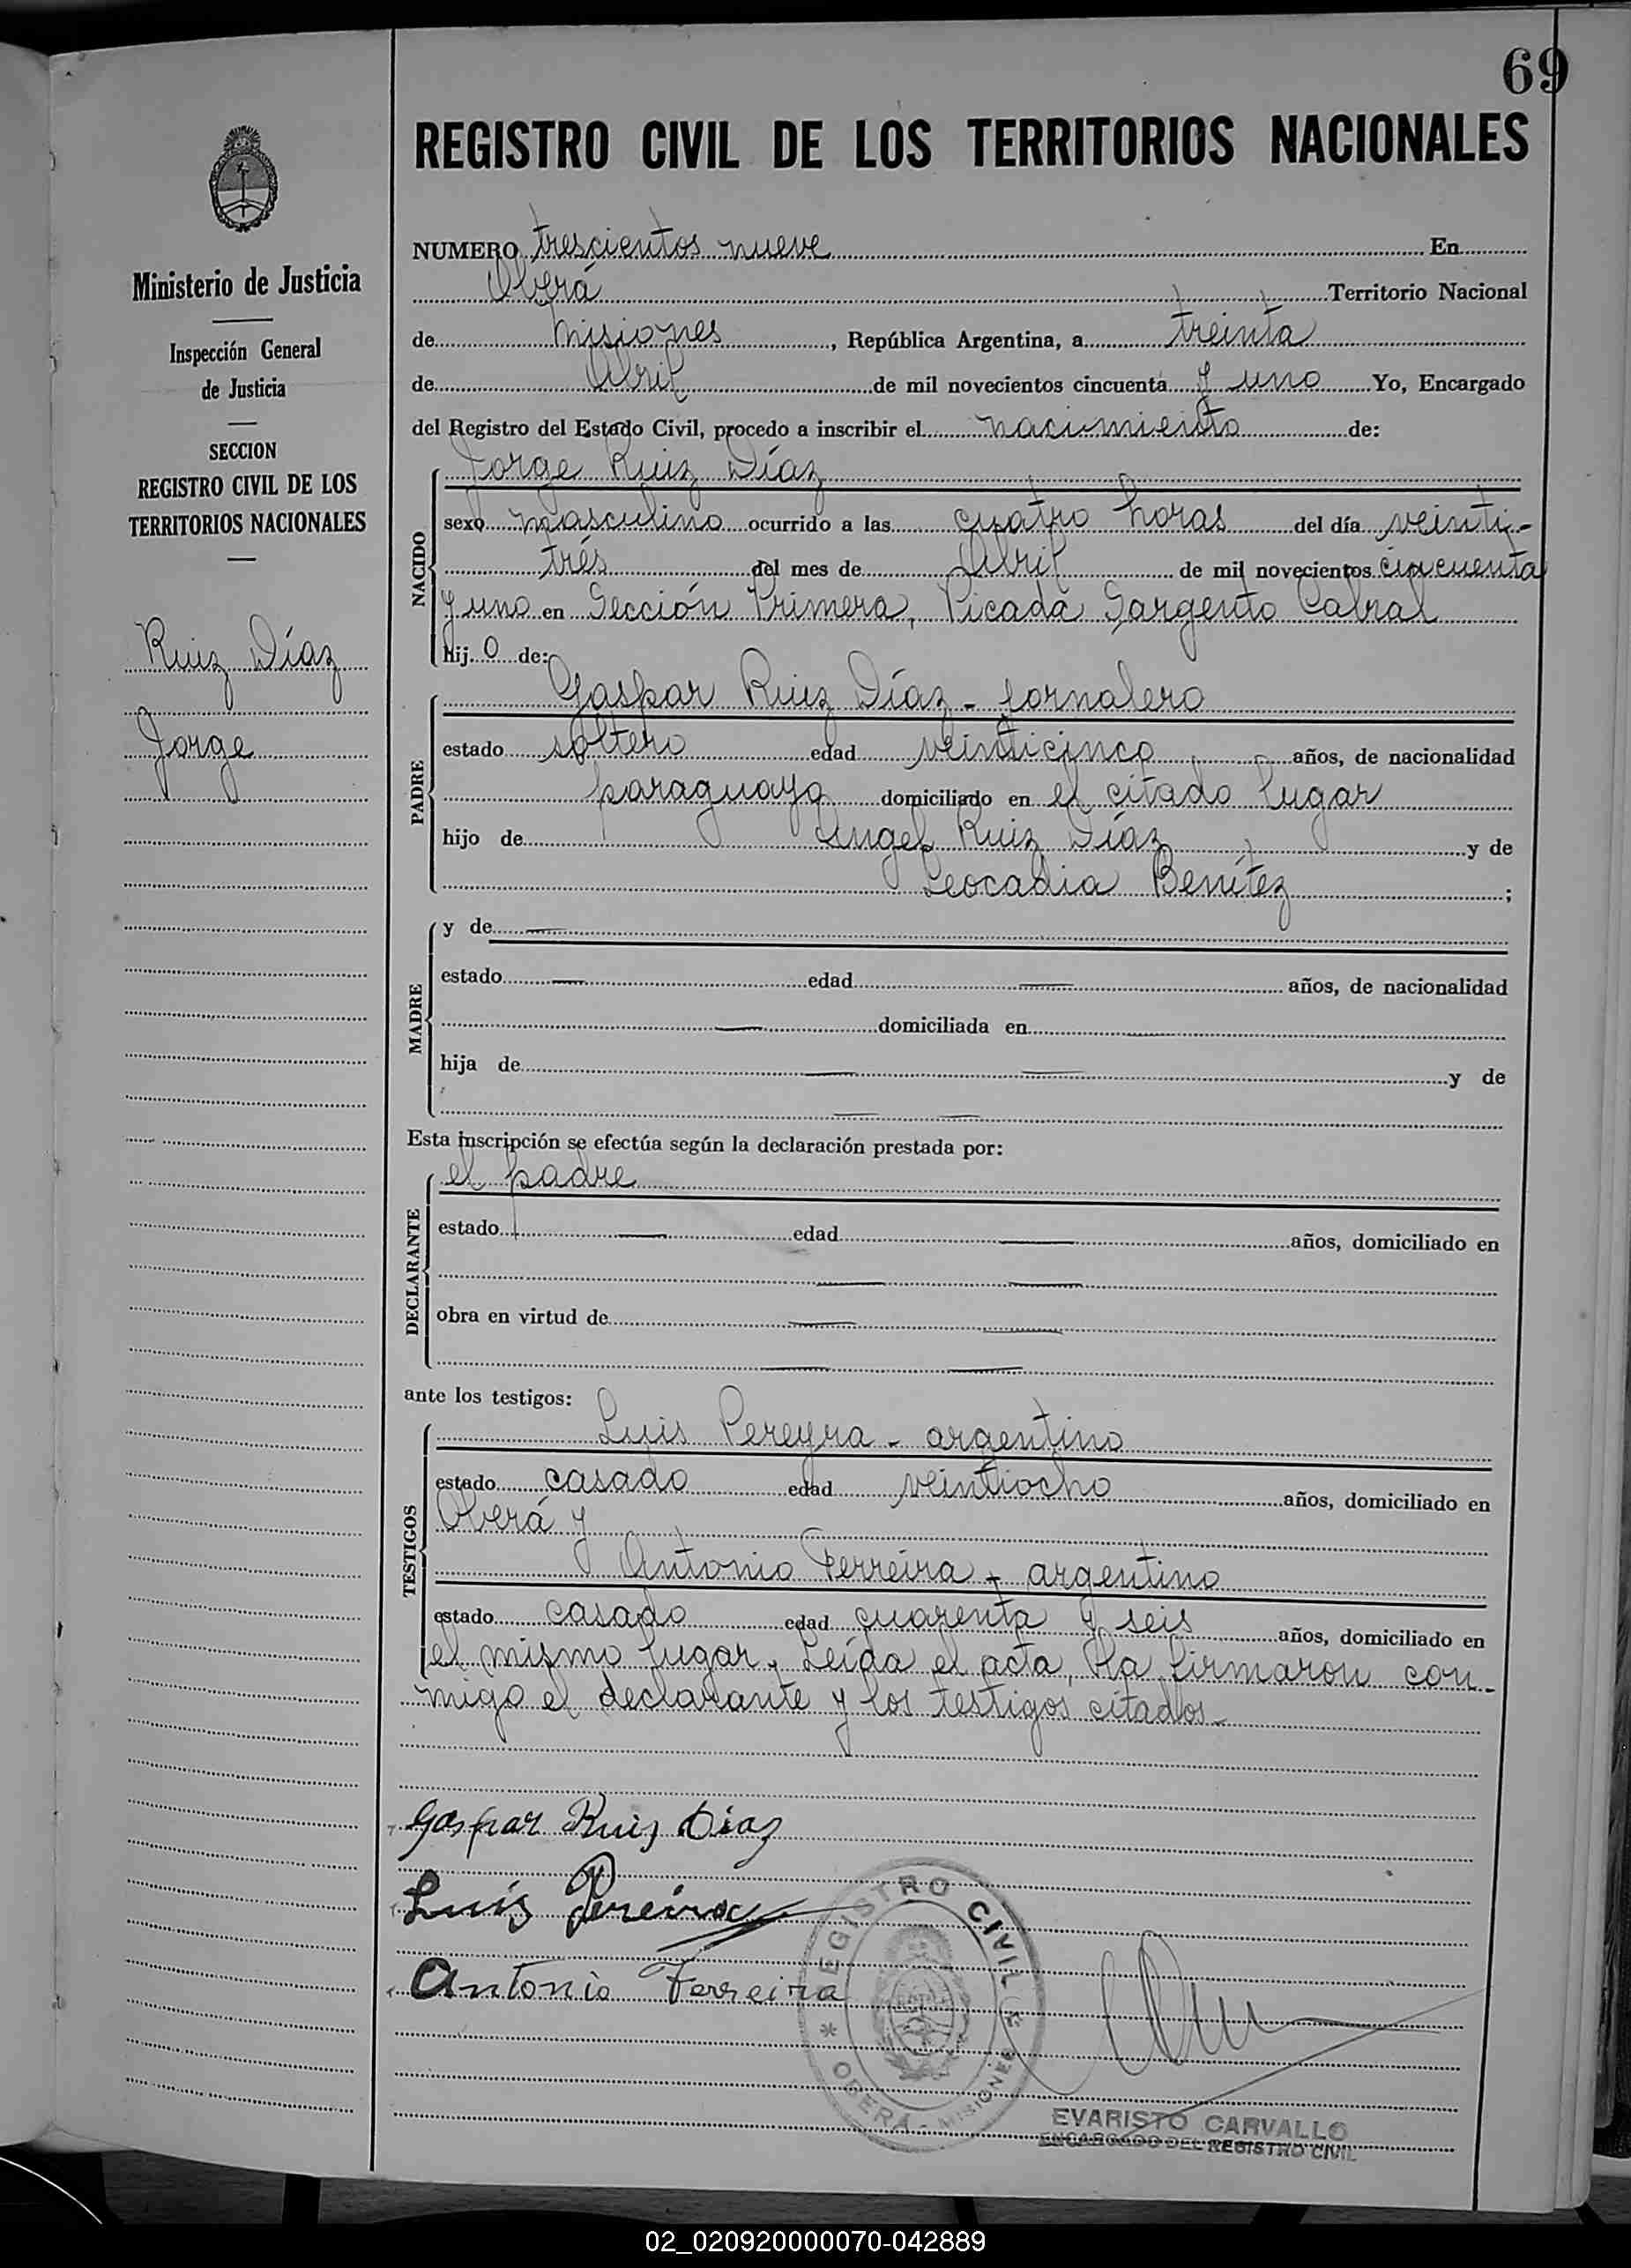 69
REGISTRO CIVIL DE LOS TERRITORIOS NACIONALES
Ministerio de Justicia
Inspección General
de Justicia
SECCION
REGISTRO CIVIL DE LOS
TERRITORIOS NACIONALES
Ruiz Díaz
Jorge
NUMERO trescientos nueve En
Oberá Territorio Nacional
de Misiones, República Argentina, a treinta
de Abril de mil novecientos cincuenta y uno Yo, Encargado
del Registro del Estado Civil, procedo a inscribir el nacimiento de:
NACIDO
Jorge Ruiz Díaz
sexo masculino ocurrido a las cuatro horas del día veinti-
trés del mes de Abril de mil novecientos cincuenta
y uno en Sección Primera, Picada Sargento Cabral
hijo de:
PADRE
Gaspar Ruiz Díaz - jornalero
estado soltero edad veinticinco años, de nacionalidad
paraguaya domiciliado en el citado lugar
hijo de Angel Ruiz Díaz y de
Leocadia Benítez ;
MADRE
y de —
estado — edad — años, de nacionalidad
— domiciliada en —
hija de — — y de
— —
Esta inscripción se efectúa según la declaración prestada por:
DECLARANTE
el padre
estado — edad — años, domiciliado en
— —
obra en virtud de — —
— —
ante los testigos:
TESTIGOS
Luis Pereyra - argentino
estado casado edad veintiocho años, domiciliado en
Oberá y
Antonio Ferreira - argentino
estado casado edad cuarenta y seis años, domiciliado en
el mismo lugar. Leída el acta, la firmaron con-
migo el declarante y los testigos citados-
Gaspar Ruiz Diaz
Luis Pereira
Antonio Ferreira
REGISTRO CIVIL
* OBERÁ - MISIONES *
EVARISTO CARVALLO
ENCARGADO DEL REGISTRO CIVIL
02_020920000070-042889